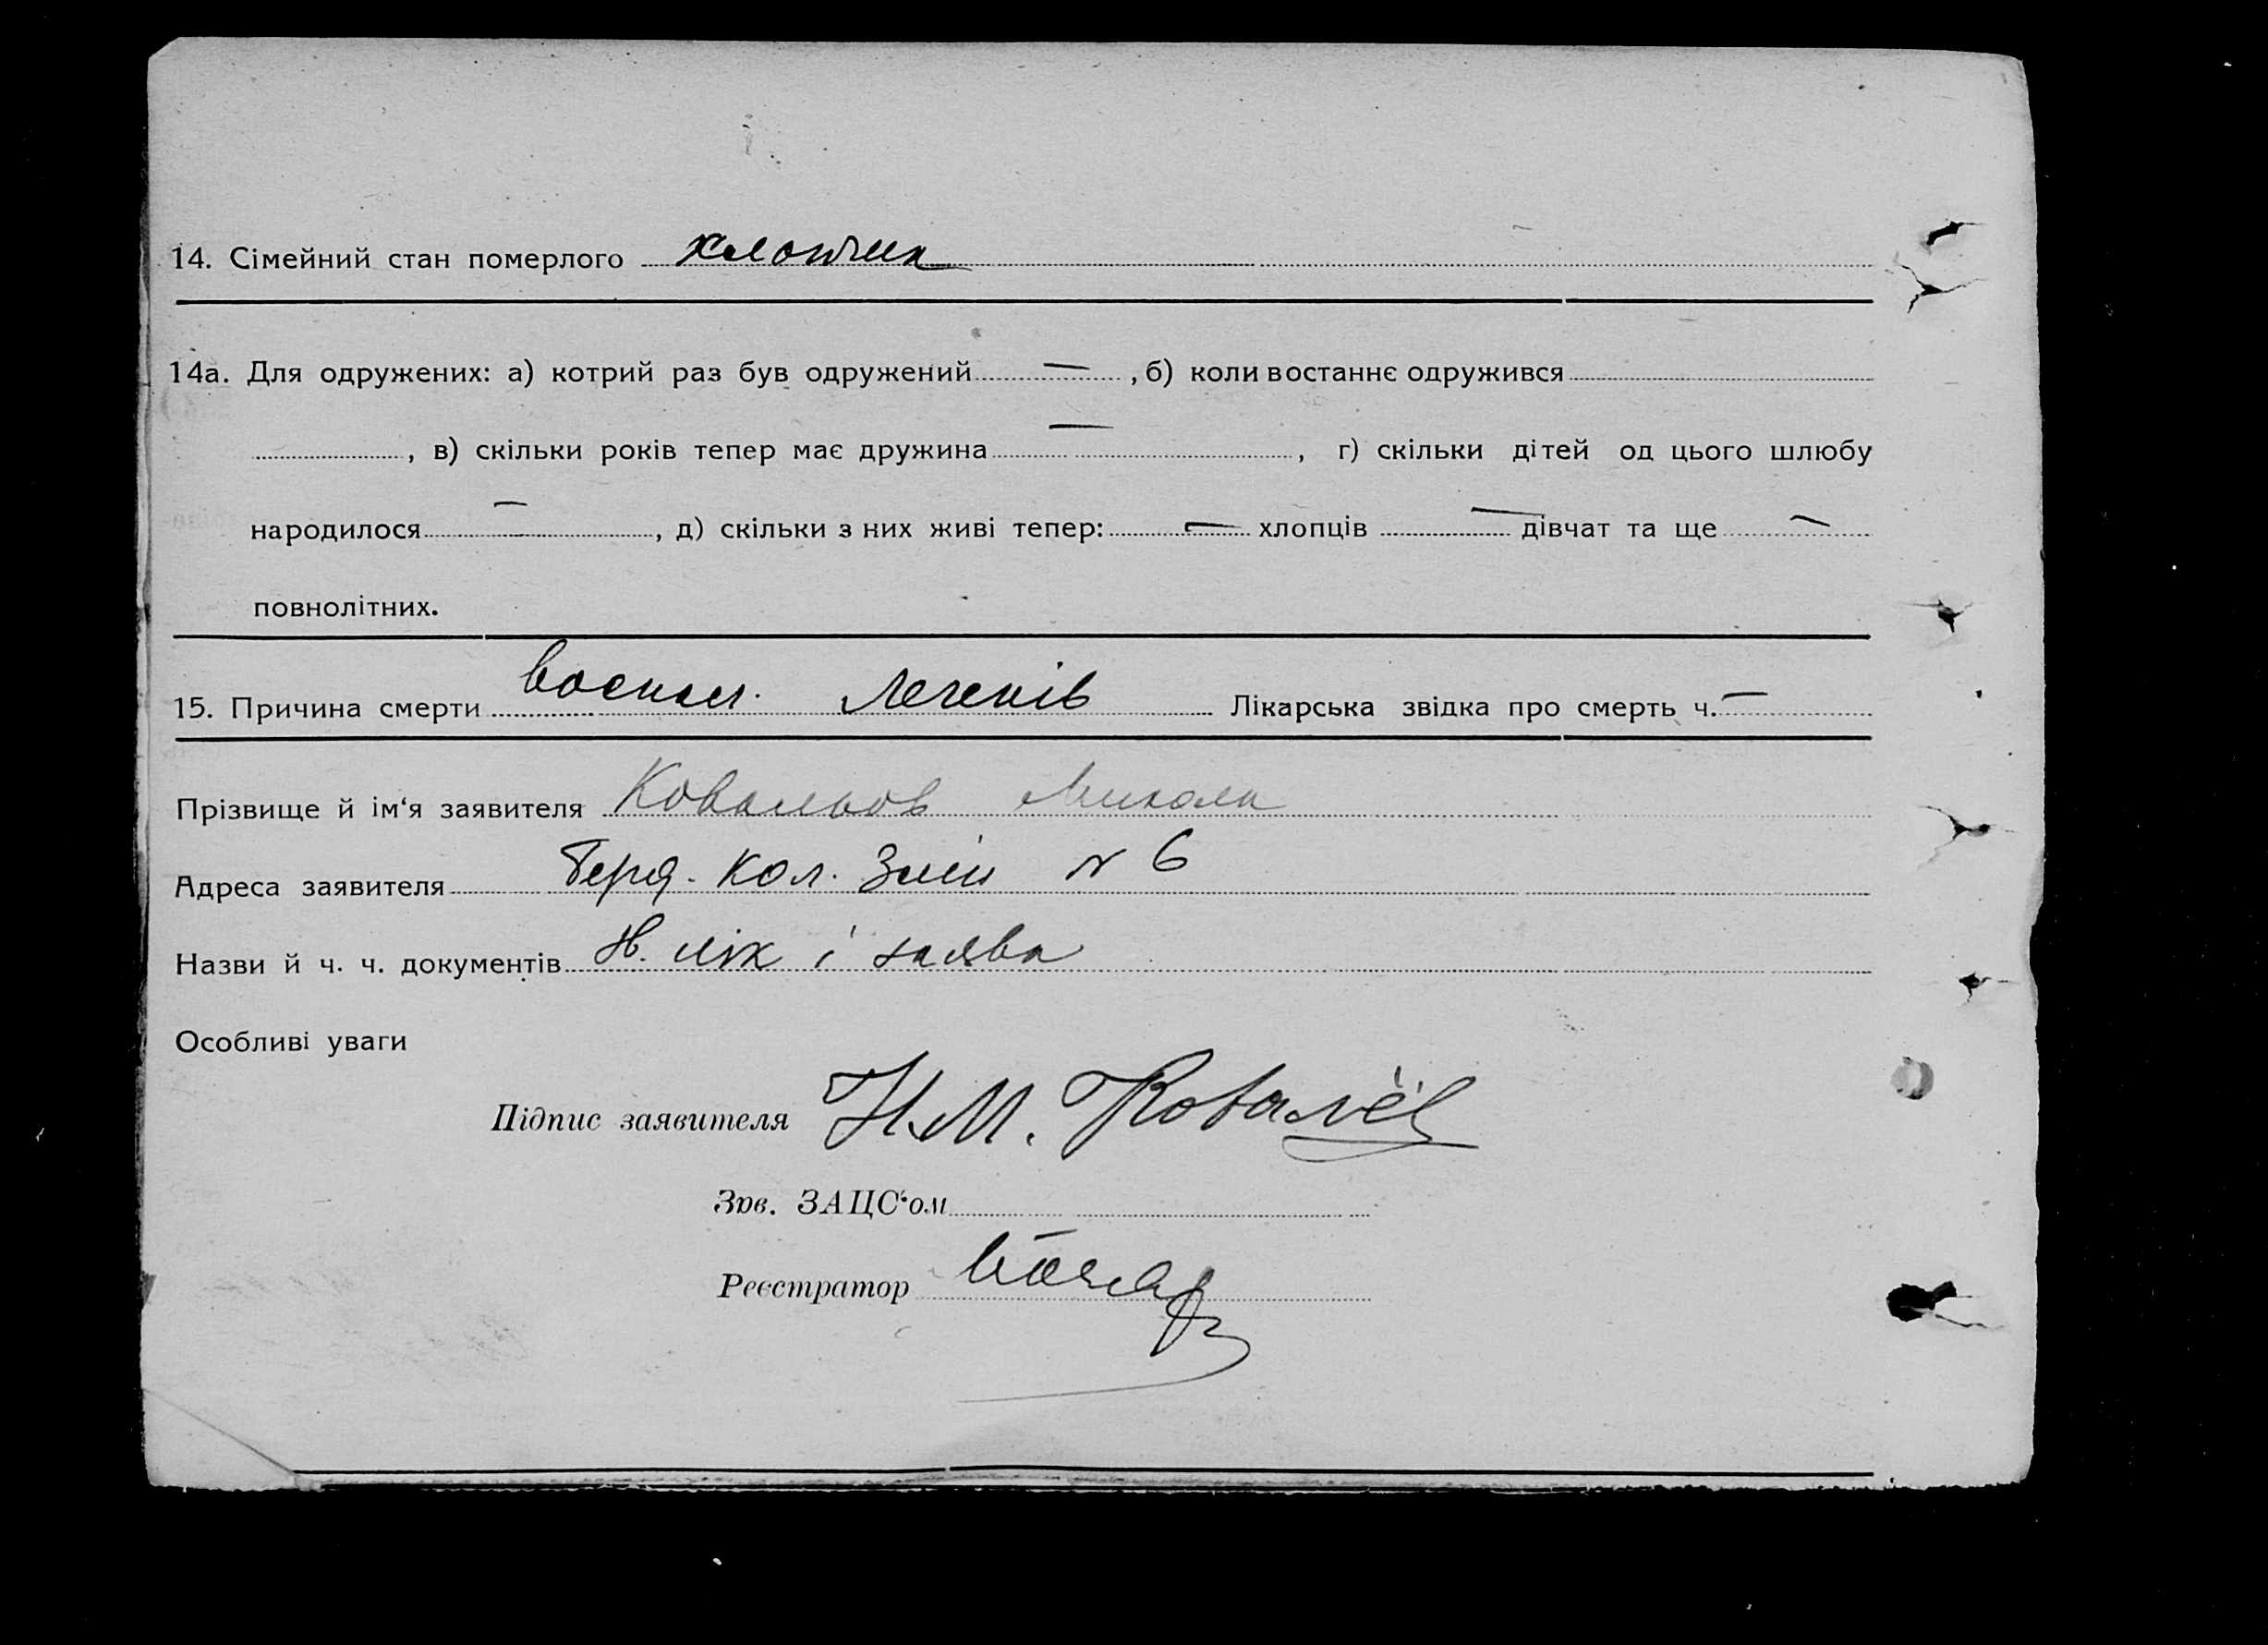 14. Сімейний стан померлого хлопчик
14а. Для одружених: а) котрий раз був одружений — , б) коли востаннє одружився
, в) скільки років тепер має дружина — , г) скільки дітей од цього шлюбу
народилося — , д) скільки з них живі тепер: — хлопців — дівчат та ще —
повнолітних.
15. Причина смерти воспал. легенів Лікарська звідка про смерть ч. —
Прізвище й ім‘я заявителя Ковальов Микола
Адреса заявителя кол. N 6
Назви й ч. ч. документів лік і заява
Особливі уваги
Підпис заявителя Н.М. Ковалёв
Зав. ЗАЦС‘ом
Реєстратор